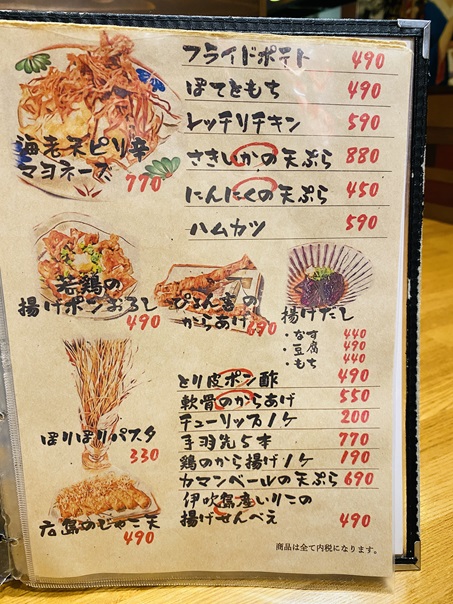 フライドポテト 490
ぽてともち 490
レッチリチキン 590
さきいかの天ぷら 880
にんにくの天ぷら 450
ハムカツ 590
海老天ピリ辛
マヨネーズ 770
若鶏の
揚げポンおろし 490
ぴょん吉の
からあげ 690
揚げだし
・なす 440
・豆腐 490
・もち 440
ぽりぽりパスタ
330
広島のじゃこ天
490
とり皮ポン酢 490
軟骨のからあげ 550
チューリップ1ケ 200
手羽先5本 770
鶏のから揚げ1ケ 190
カマンベールの天ぷら 690
伊吹島産いりこの
揚げせんべえ 490
商品は全て内税になります。